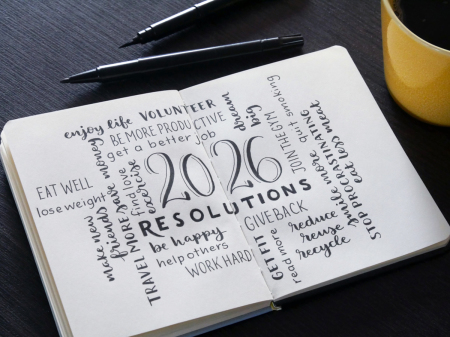 enjoy life
VOLUNTEER
BE MORE PRODUCTIVE
get a better job
dream
big
EAT WELL
lose weight
make new
friends
save money
TRAVEL MORE
find love
exercise
2026
RESOLUTIONS
JOIN THE GYM
quit smoking
smile more
STOP PROCRASTINATING
eat less meat
be happy
help others
WORK HARD
GIVE BACK
GET FIT
read more
reduce
reuse
recycle